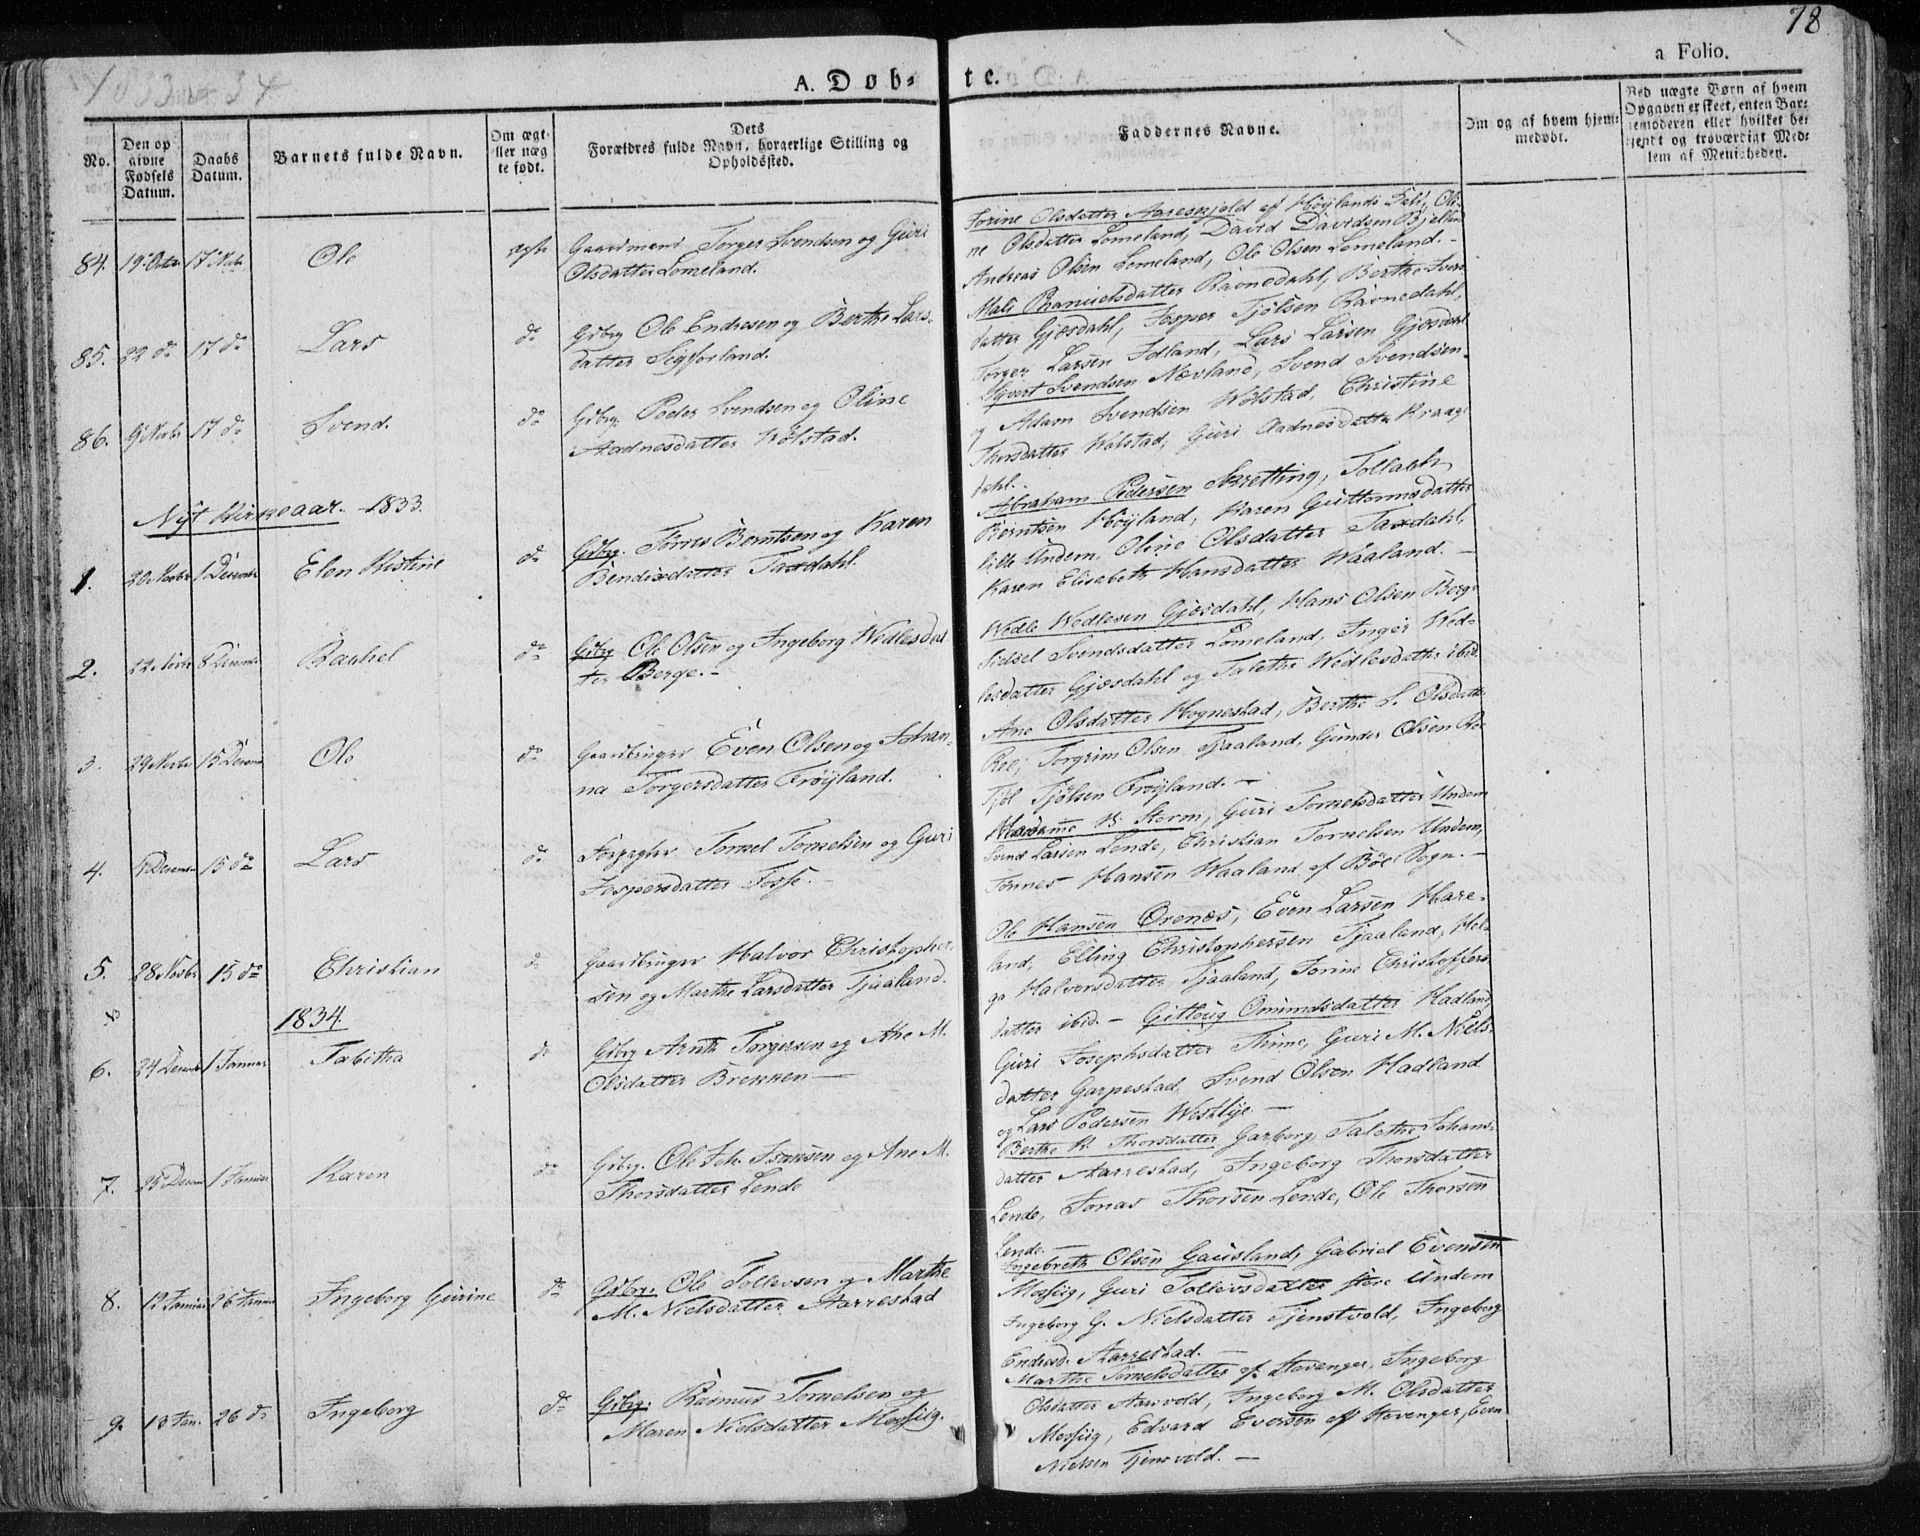 78
1833 34
A. Døb- te.
a Folio.
No.
Den op
givne
Fødsels
Datum.
Daabs
Datum.
Barnets fulde Navn.
Om ægt-
eller næg
te født.
Dets
Forældres fulde Navn, borgerlige Stilling og
Opholdssted.
Faddernes Navne.
Om og af hvem hjem-
medøbt.
Ved uægte Børn af hvem
Opgaven er skeet, enten Bar-
nemoderen eller hvilket be-
kjendt og troværdigt Med-
lem af Menigheden.
84. 19 Octo 17 Nobr Ole ægte Gaardmand Torger Svendsen og Guri
Olsdatter Lomeland.
Torine Olsdatter Aareskjold af Høylands Præst, Oli-
ne Olsdatter Lomeland, David Davidsen Bjelland
Andreas Olsen Lomeland, Ole Olsen Lomeland.-
85. 22 do 17 do Lars do Gdbrg Ole Endresen og Berthe Lars-
datter Sigfusland.
Mali Danielsdatter Ravnedahl, Berthe Svens-
datter Gjæsdahl, Jesper Tjölsen Ravnedahl,
Torger Larsen Idland, Lars Larsen Gjæsdahl
86. 9 Nobr 17 do Svend. do Gdbrg. Peder Svendsen og Oline
Aadnesdatter Wølstad.
Sigvert Svendsen Nævland, Svend Svendsen
og Adam Svendsen Wølstad, Christine
Thorsdatter Wølstad, Guri Aadnesdatter Kraage
dahl.-
Nyt Kirkeaar.- 1833.
1. 20 Novbr 1 Decembr Elen Kistine do Gdbrg. Tørres Berntsen og Karen
Bendixdatter Taxdahl.
Abraham Pedersen Skretting, Tollach
Berntsen Høyland, Karen Guttormsdatter
lille Undem. Oline Olsdatter Taxdahl,
Karen Elisabeth Hansdatter Waaland.-
2. 22 8 Decembr Rachel do Gdbrg Ole Olsen og Ingeborg Wedlesdat
ter Berge.-
Wedle Wedlesen Gjæsdahl, Hans Olsen Berge
Sidsel Svendsdatter Lomeland, Inger Wed-
lesdatter Gjæsdahl og Talethe Wedlesdatter ibid.
3. 29 Novbr 15 Decem Ole do Gaardbruger Even Olsen og Johan-
na Torgersdatter Frøyland.
Ane Olsdatter Hognestad, Berthe L. Olsdatter
Roe, Torgrim Olsen Tjaaland, Gunder Olsen Ro-
Tjöl Tjölsen Frøyland.-
4. Decemb 15 do Lars do Forpagter Tomel Tomelsen og Guri
Jespersdatter Fosse.-
Madame W. Storm, Guri Tomelsdatter Undem
Svend Larsen Lende, Christian Tomelsen Undem,
Tønnes Hansen Waaland af Böe Sogn.-
5. 28 Novbr 15 do Christian do Gaardbruger Halvor Christopher-
sen og Marthe Larsdatter Tjaaland.
Ole Hansen Ørenæs, Even Larsen Hare-
land, Elling Christophersen Tjaaland, Hel-
ga Halvorsdatter Tjaaland, Torine Christoffers-
datter ibid.-
1834
6. 24 Decemb 1 Januar Tabitha do Gdbrg Arnth Torgersen og Ane M.
Olsdatter Brekken —
Gitlaug Omundsdatter Hadland
Guri Josephsdatter Thime, Guri M. Niels-
datter Garpestad, Svend Olsen Hadland
og Lars Pedersen Westlye —
7. 25 Decem 1 Januar Karen do Gdbrg. Ole Joh. Ivarsen og Ane M.
Thorsdatter Lende
Berthe K. Thorsdatter Garborg, Talethe Johans-
datter Aarrestad, Ingeborg Thorsdatter
Lende, Jonas Thorsen Lende, Ole Thorsen
Lende.—
8. 12 Januar 26 Januar Ingeborg Gurine do Gdbrg. Ole Tollevsen og Marthe
M. Nielsdatter Aarrestad
Ingebreth Olsen Gausland, Gabriel Evensen
Mossiig, Guri Tollevsdatter store Undem
Ingeborg G. Nielsdatter Tjenstvold, Ingeborg
Endresd. Aarrestad.—
9. 13 Jan. 26 do Ingeborg do Gdbrg. Rasmus Tomelsen og
Maren Nielsdatter Mossiig.
Marthe Tomelsdatter af Stavanger, Ingeborg
Olsdatter Aarsvold, Ingeborg M. Olsdatter
Mossiig, Edvard Eversen af Stavanger, Even
Nielsen Tjensvold.—